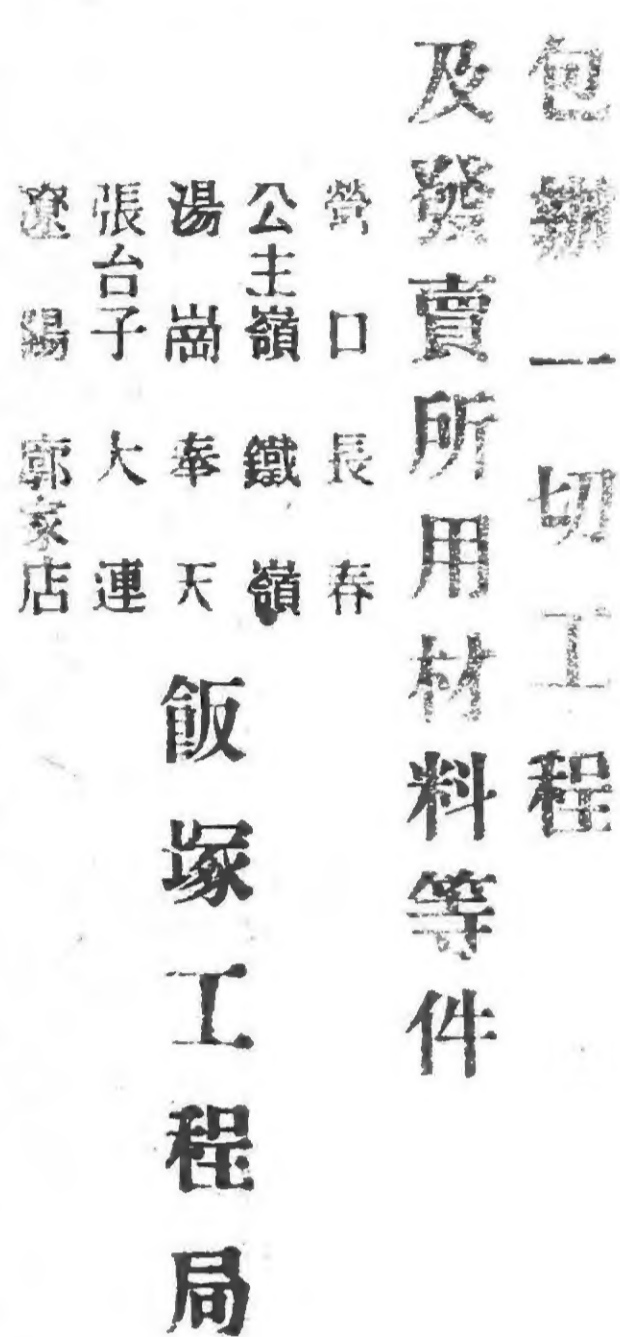 包辦一切工程
及發賣所用材料等件
營口 長春
公主嶺 鐵嶺
湯崗 奉天
張台子 大連
遼陽 郭家店
飯塚工程局